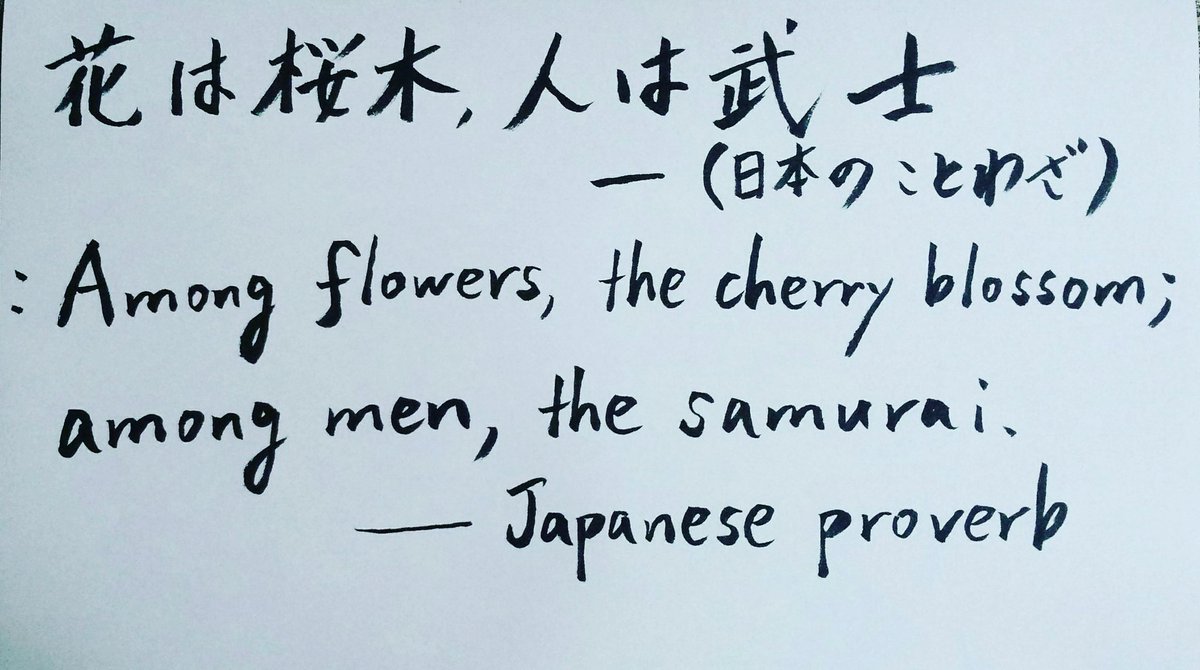 花は桜木,人は武士
―(日本のことわざ)
: Among flowers, the cherry blossom;
among men, the samurai.
― Japanese proverb